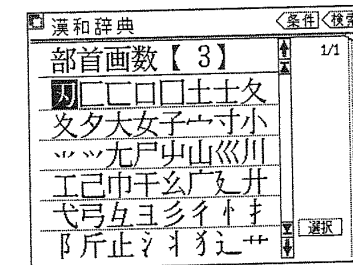 漢和辞典 条件 検索
部首画数【 3】 1/1
刃匚匸口囗土士夂
夊夕大女子宀寸小
⺌⺍尢尸屮山巛川
工己巾干幺广廴廾
弋弓彑彐彡彳忄扌
阝斤止氵丬犭辶艹
選択